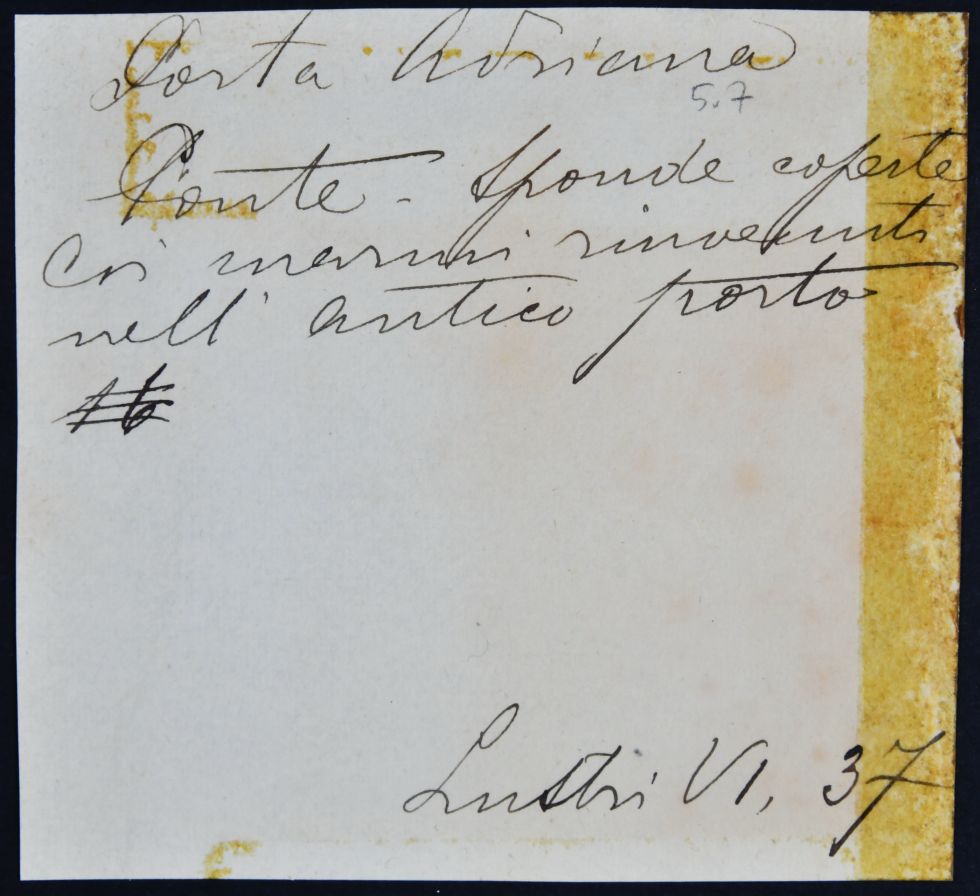 Porta Adriana
5.7
Ponte - Sponde coperte
coi marmi rinvenuti
nell' antico porto
16
Lustri VI, 37